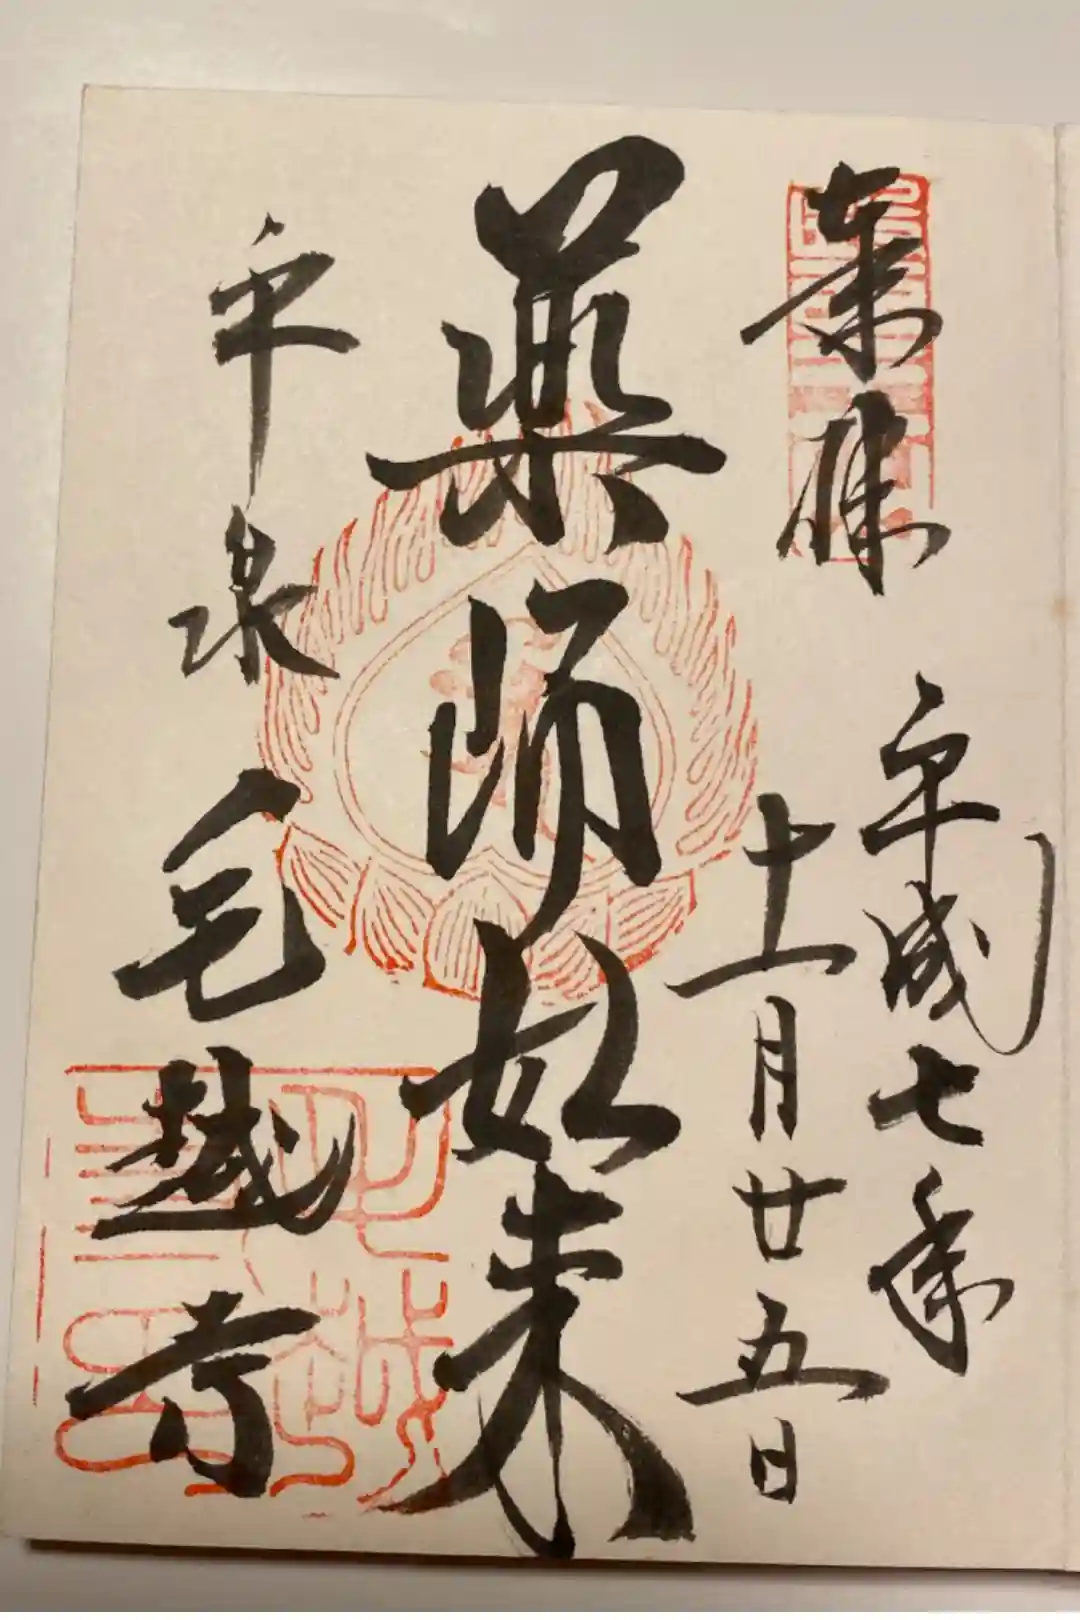 奉拝
平成七年
十一月廿五日
薬師如来
平泉
毛越寺